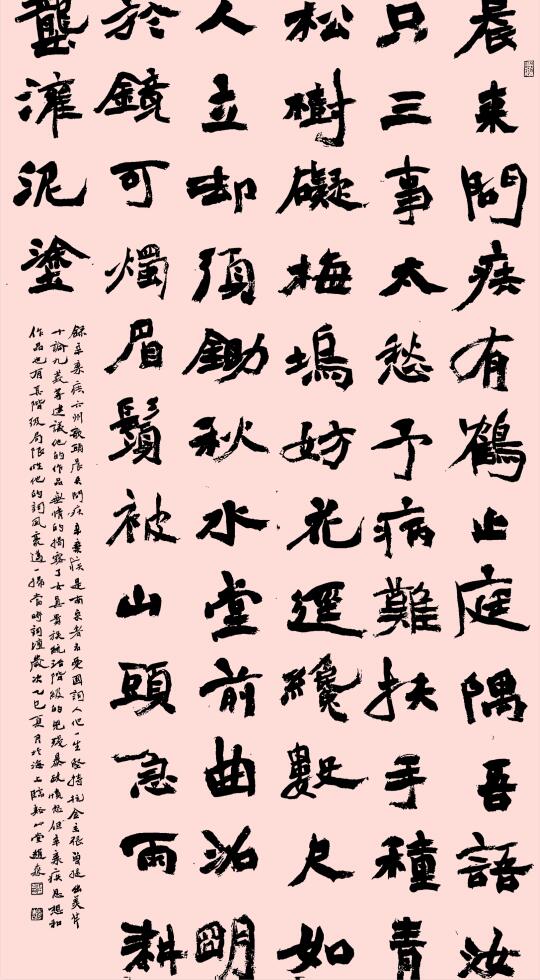 晨來問疾有鶴止庭隅吾語汝
只三事太愁予病難扶手種青
松樹礙梅塢妨花逕纔數尺如
人立却須鋤秋水堂前曲沼明
於鏡可燭眉鬚被山頭急雨耕
壟灌泥塗
錄辛棄疾六州歌頭晨來問疾辛棄疾是南宋著名愛國詞人他一生堅持抗金主張曾提出美芹
十論九義等建議他的作品無情的揭露了女真貴族統治階級的兇殘暴政憤怒但辛棄疾思想和
作品也有其階級局限性他的詞風豪邁一掃當時詞壇歲次乙巳夏月於海上臨谿山堂趙